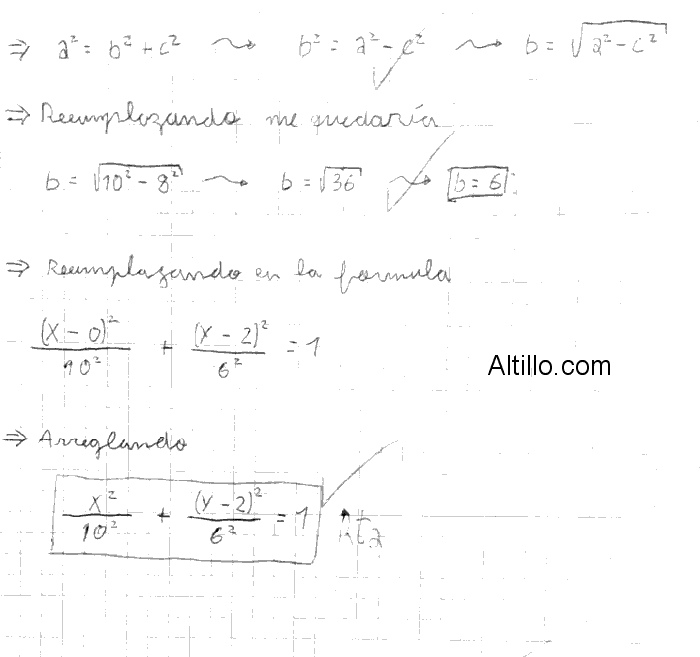 ⇒ a² = b² + c² ⤳ b² = a² − c² ⤳ b = √(a² − c²)
⇒ Reemplazando me quedaría
b = √(10² − 8²) ⤳ b = √36 ⤳ b = 6
⇒ Reemplazando en la formula
(x − 0)²/10² + (y − 2)²/6² = 1
Altillo.com
⇒ Arreglando
x²/10² + (y − 2)²/6² = 1 Rta